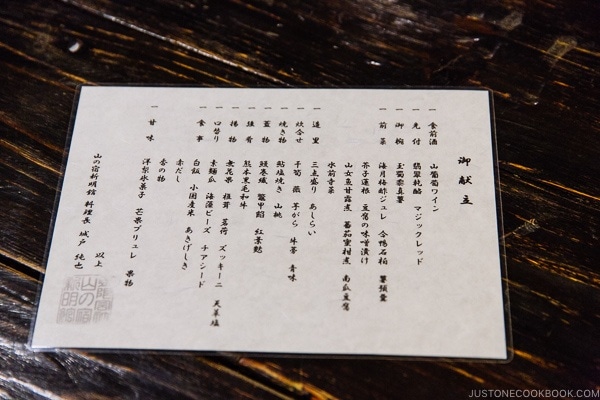 御献立
一 食前酒 山葡萄ワイン
一 先付 翡翠杭酪 マジックレッド
一 御椀 玉蜀黍真薯
一 前菜 海月梅酢ジュレ 合鴨石垣
芥子蓮根 豆腐の味噌漬け
山女魚甘露煮 蕃茄蜜柑煮 南瓜豆腐
水前寺菜
一 造里 三点盛り あしらい
一 炊合せ 千筍 蕗 芋がら 青味
一 焼き物 鮎塩焼き 山桃
一 蓋物 鰻巻繊 鼈甲餡 紅葉麩
一 強肴 熊本黒毛和牛
一 揚物 無花果 椎茸 茗荷 ズッキーニ 天茶塩
一 口替り 素麺瓜 海藻ビーズ チアシード
一 食事 白飯 小国産米 あきげしき
赤だし
香の物
一 甘味 洋梨氷菓子 芒果ブリュレ 果物
以上
山の宿新明館 料理長 城戸 純也
JUSTONECOOKBOOK.COM